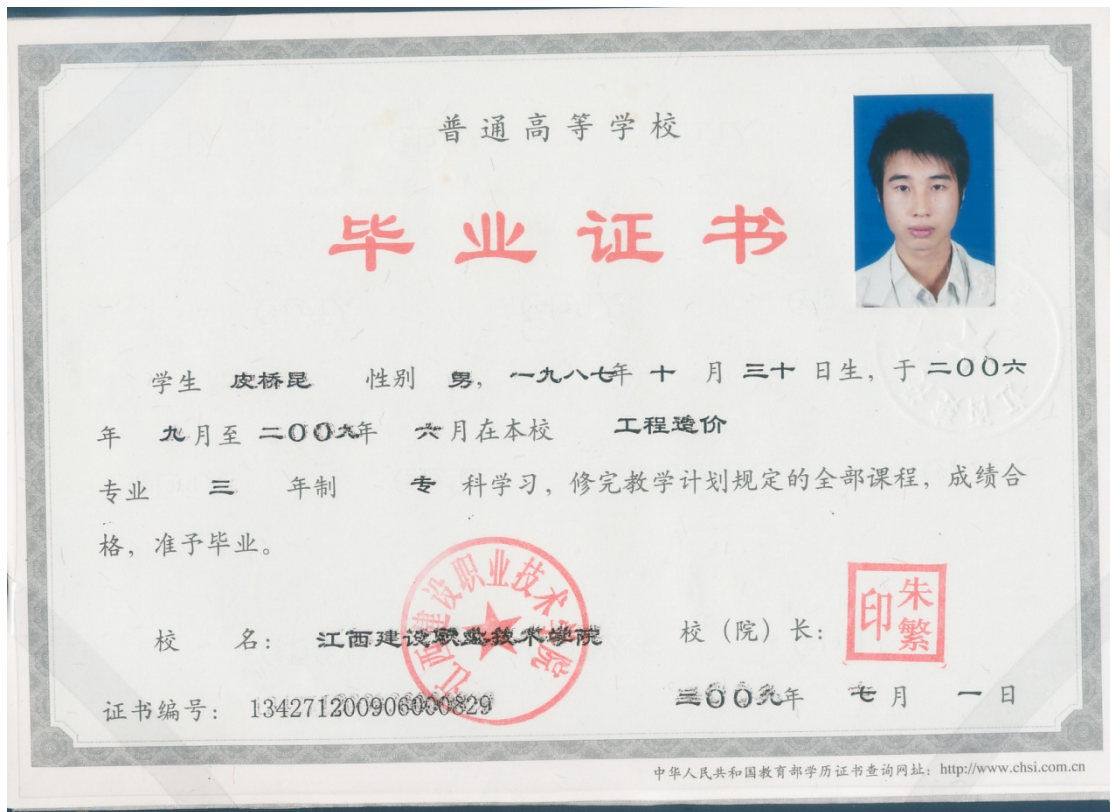 普通高等学校
毕业证书
学生 皮桥昆 性别 男，一九八七年 十 月 三十 日生，于 二〇〇六
年 九月至 二〇〇九年 六月在本校 工程造价
专业 三 年制 专 科学习，修完教学计划规定的全部课程，成绩合
格，准予毕业。
江西建设职业技术学院
朱繁印
校 名： 江西建设职业技术学院 校（院）长：
证书编号： 134271200906000829 二〇〇九年 七月 一日
中华人民共和国教育部学历证书查询网址：http://www.chsi.com.cn